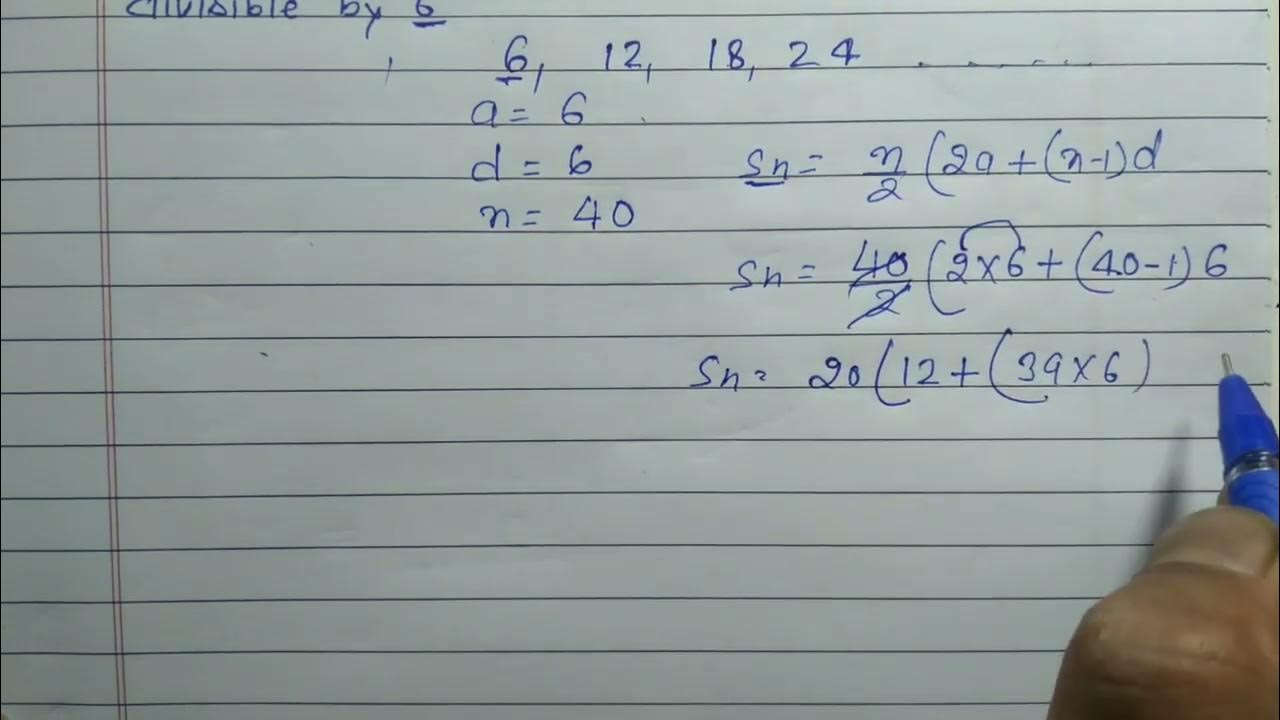 divisible by 6
6, 12, 18, 24 .......
a = 6
d = 6
n = 40
Sn = n/2 (2a + (n-1)d
Sn = 40/2 (2×6 + (40-1)6
Sn = 20 (12 + (39×6)